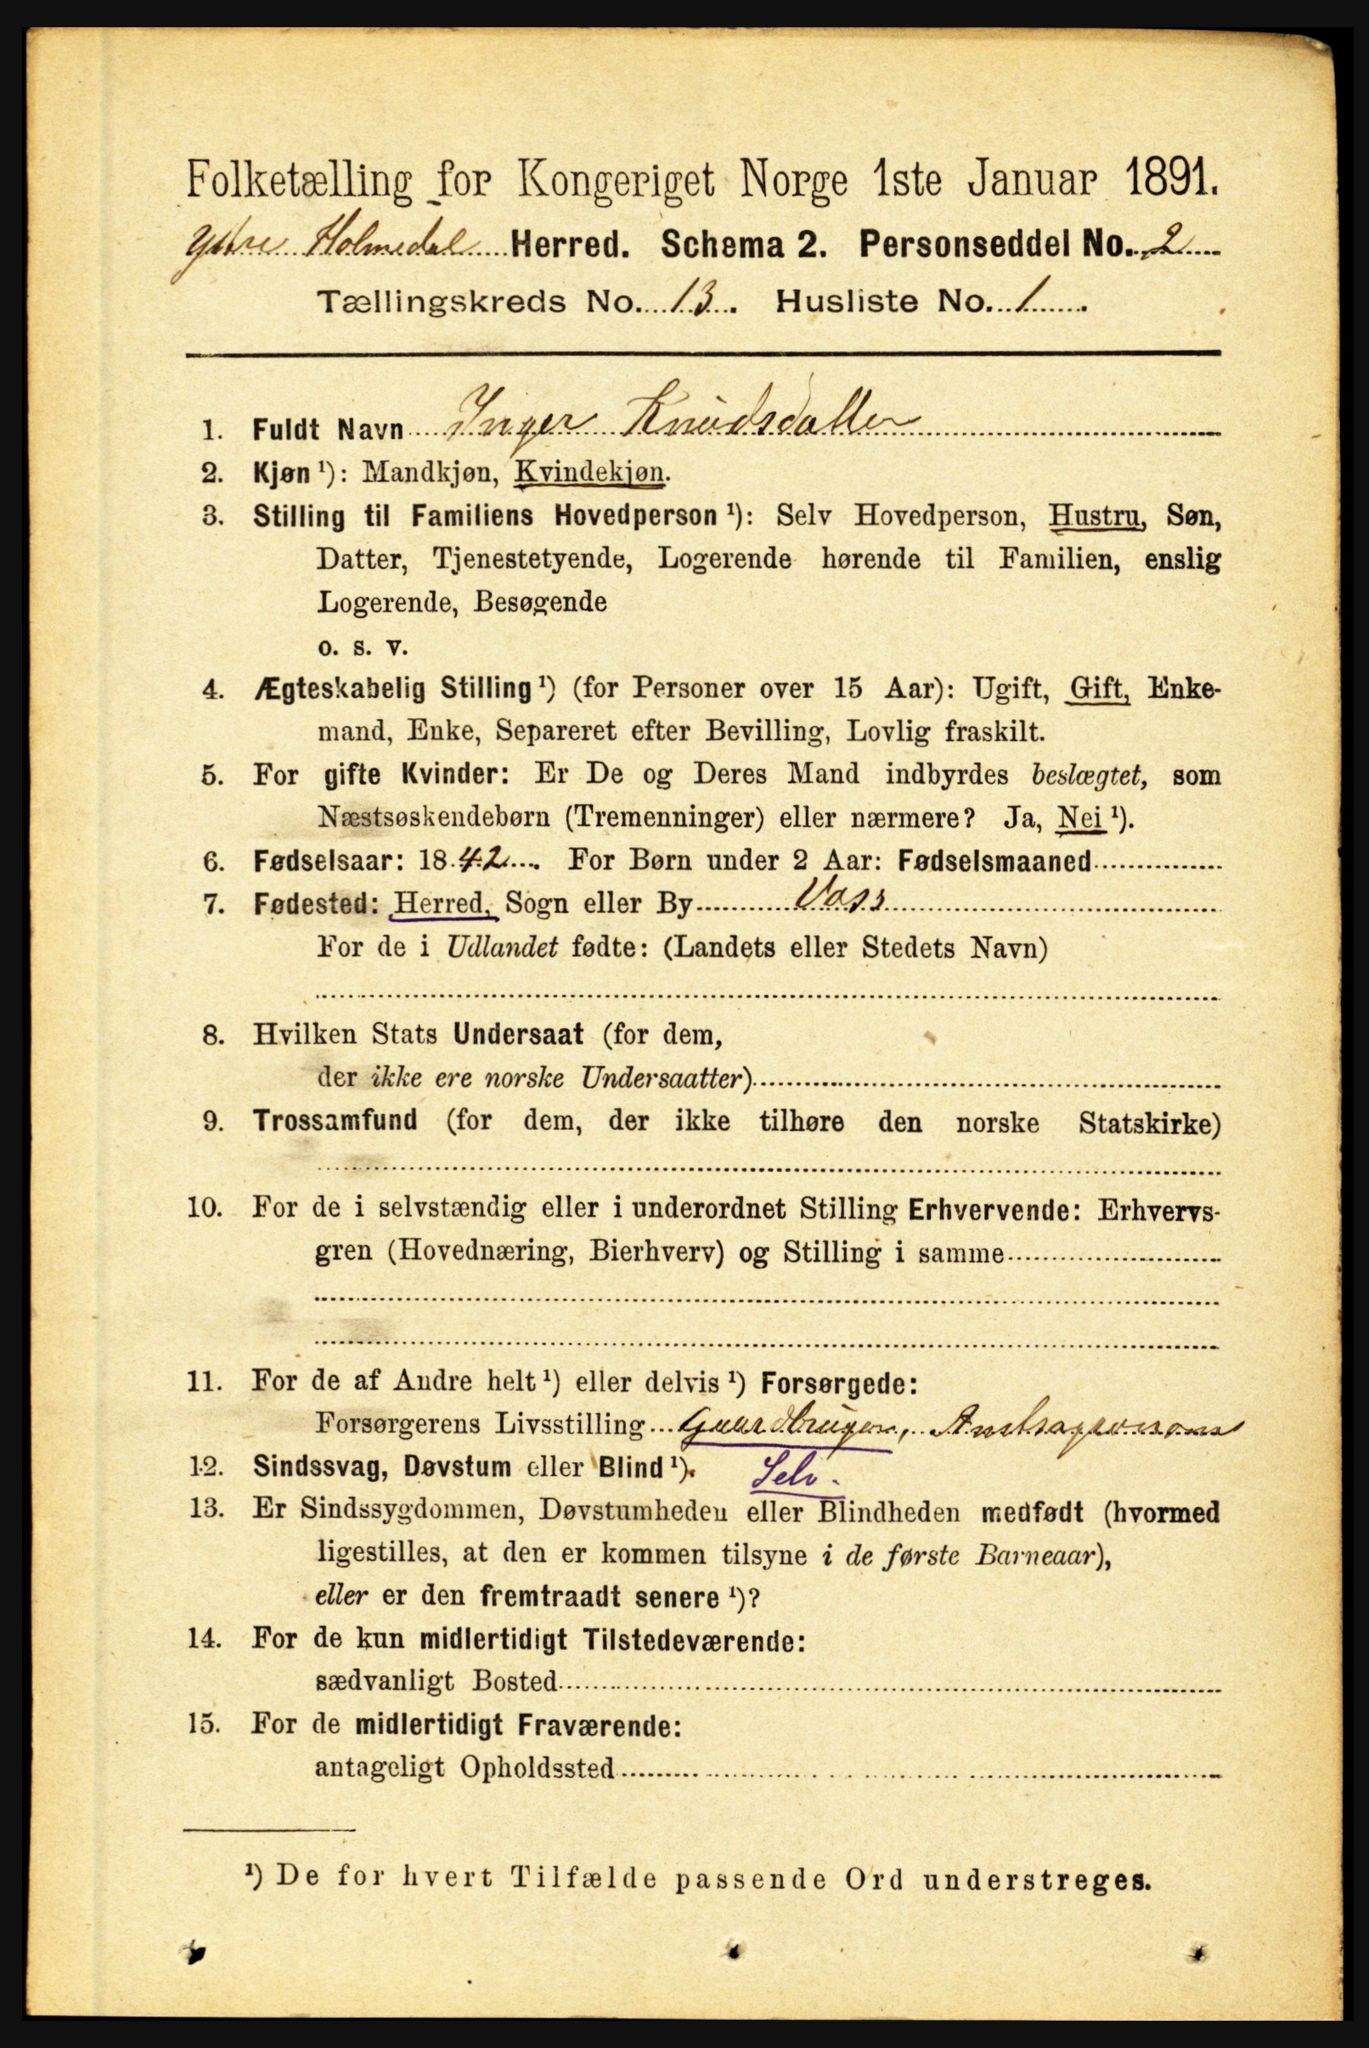 Folketælling for Kongeriget Norge 1ste Januar 1891.
Ydre Holmedal Herred. Schema 2. Personseddel No. 2
Tællingskreds No. 13. Husliste No. 1
1. Fuldt Navn Inger Knudsdatter
2. Kjøn ¹): Mandkjøn, Kvindekjøn.
3. Stilling til Familiens Hovedperson ¹): Selv Hovedperson, Hustru, Søn,
Datter, Tjenestetyende, Logerende hørende til Familien, enslig
Logerende, Besøgende
o. s. v.
4. Ægteskabelig Stilling ¹) (for Personer over 15 Aar): Ugift, Gift, Enke-
mand, Enke, Separeret efter Bevilling, Lovlig fraskilt.
5. For gifte Kvinder: Er De og Deres Mand indbyrdes beslægtet, som
Næstsøskendebørn (Tremenninger) eller nærmere? Ja, Nei ¹).
6. Fødselsaar: 1842. For Børn under 2 Aar: Fødselsmaaned
7. Fødested: Herred, Sogn eller By Voss
For de i Udlandet fødte: (Landets eller Stedets Navn)
8. Hvilken Stats Undersaat (for dem,
der ikke ere norske Undersaatter)
9. Trossamfund (for dem, der ikke tilhøre den norske Statskirke)
10. For de i selvstændig eller i underordnet Stilling Erhvervende: Erhvervs-
gren (Hovednæring, Bierhverv) og Stilling i samme
11. For de af Andre helt ¹) eller delvis ¹) Forsørgede:
Forsørgerens Livsstilling Gaardbruger, Amtsagronom
12. Sindssvag, Døvstum eller Blind ¹). Selv.
13. Er Sindssygdommen, Døvstumheden eller Blindheden medfødt (hvormed
ligestilles, at den er kommen tilsyne i de første Barneaar),
eller er den fremtraadt senere ¹)?
14. For de kun midlertidigt Tilstedeværende:
sædvanligt Bosted
15. For de midlertidigt Fraværende:
antageligt Opholdssted
¹) De for hvert Tilfælde passende Ord understreges.